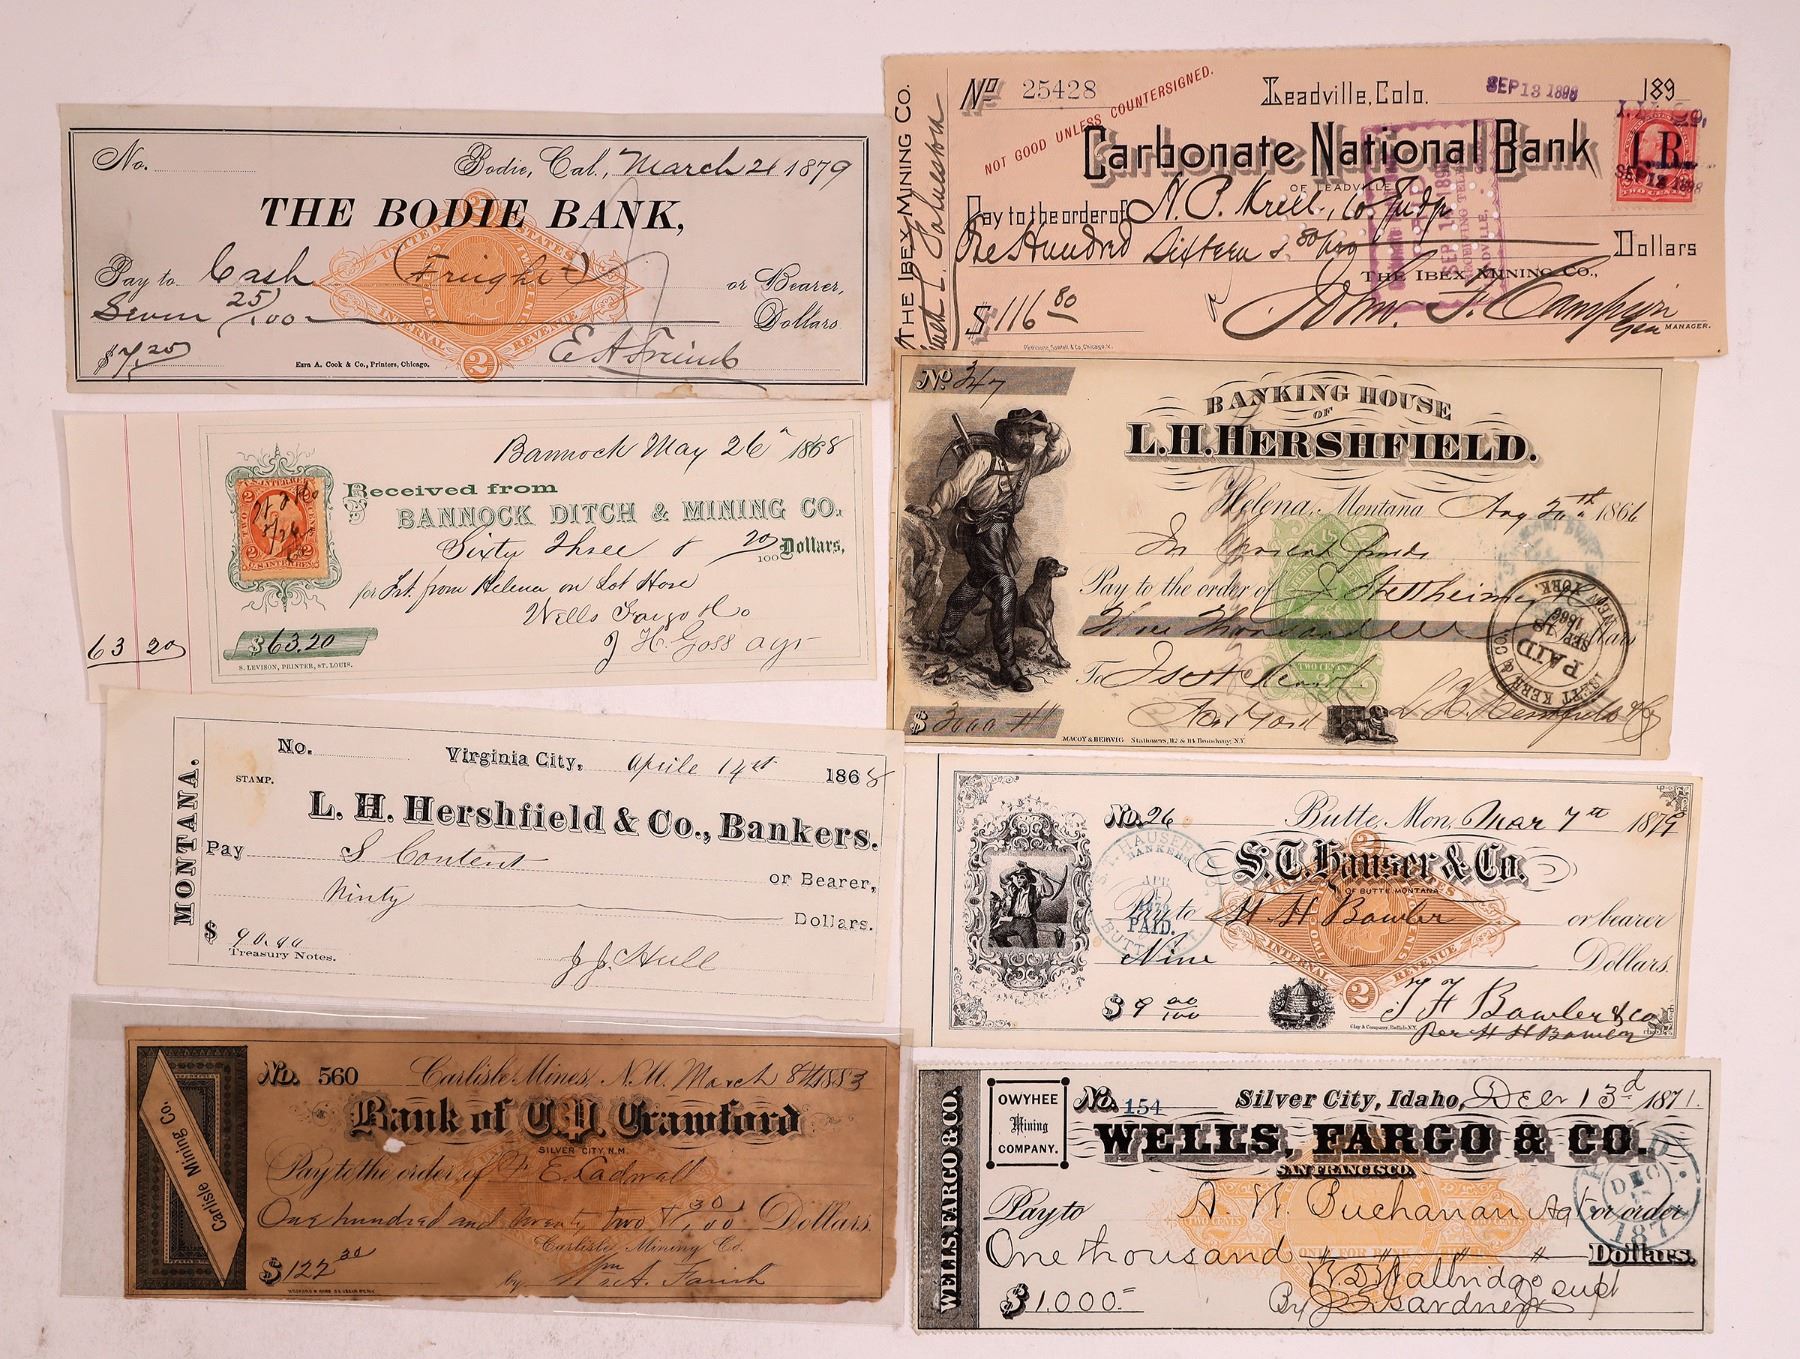 No.
Bodie, Cal., March 21 1879
THE BODIE BANK,
Pay to Cash (Freight) or Bearer,
Seven 25/100 Dollars
$7.25
Ezra A. Cook & Co., Printers, Chicago.
UNITED STATES
INTERNAL REVENUE
2
THE IBEX MINING CO.
No 25428
NOT GOOD UNLESS COUNTERSIGNED.
Leadville, Colo. SEP 13 1898 189
Carbonate National Bank
OF LEADVILLE
I.R.
SEP 13 1898
TWO CENTS
Pay to the order of
One Hundred Sixteen & 80/100 Dollars
THE IBEX MINING CO.,
$116 80
John F. Campion
Gen MANAGER.
Bannock May 26th 1868
U.S. INTER. REV.
Received from
BANNOCK DITCH & MINING CO.,
Sixty Three & 20/100 Dollars,
for Frt. from Helena on Lot Hose
Wells Fargo & Co
J H. Goss agt
$63.20
S. LEVISON, PRINTER, ST. LOUIS.
63 20
No. 347
BANKING HOUSE
OF
L.H. HERSHFIELD.
Helena, Montana Aug 20th 1866
In Current funds
Pay to the order of J Stettheimer
Three Thousand Dollars
TWO CENTS
PAID
SEP 18
1866
NEW YORK
To
New York
$3000
L. H. Hershfield & Co
MACOY & HERWIG Stationers, 112 & 114 Broadway, N.Y.
MONTANA.
No. Virginia City, Aprile 14st 1868
STAMP.
L. H. Hershfield & Co., Bankers.
Pay S Content or Bearer,
Ninty Dollars.
$ 90.00
Treasury Notes.
J J. Hull
No. 26 Butte, Mon, Mar 7th 1879
S.T. Hauser & Co.
OF BUTTE, MONTANA
S.T. HAUSER & CO
BANKERS
APR
1879
PAID.
BUTTE
Pay to H H Bowler or bearer
Nine Dollars.
INTERNAL REVENUE
2
$9 00/100
T F Bowler & Co
Per H H Bowler
Clay & Company, Buffalo, N.Y.
Carlisle Mining Co.
No. 560 Carlisle Mines, N.M. March 8th 1883
Bank of C.P. Crawford
SILVER CITY, N.M.
Pay to the order of F E Cadwell
One hundred and twenty two & 30/100 Dollars.
Carlisle Mining Co.
$122 30
by Wm A. Farish
WELLS, FARGO & CO.
OWYHEE
Mining
COMPANY.
No. 154 Silver City, Idaho, Decr 13d 1871.
WELLS, FARGO & CO.
SAN FRANCISCO.
Pay to A. W. Buchanan Agt or order
One thousand Dollars.
$1,000.-
Supt
By